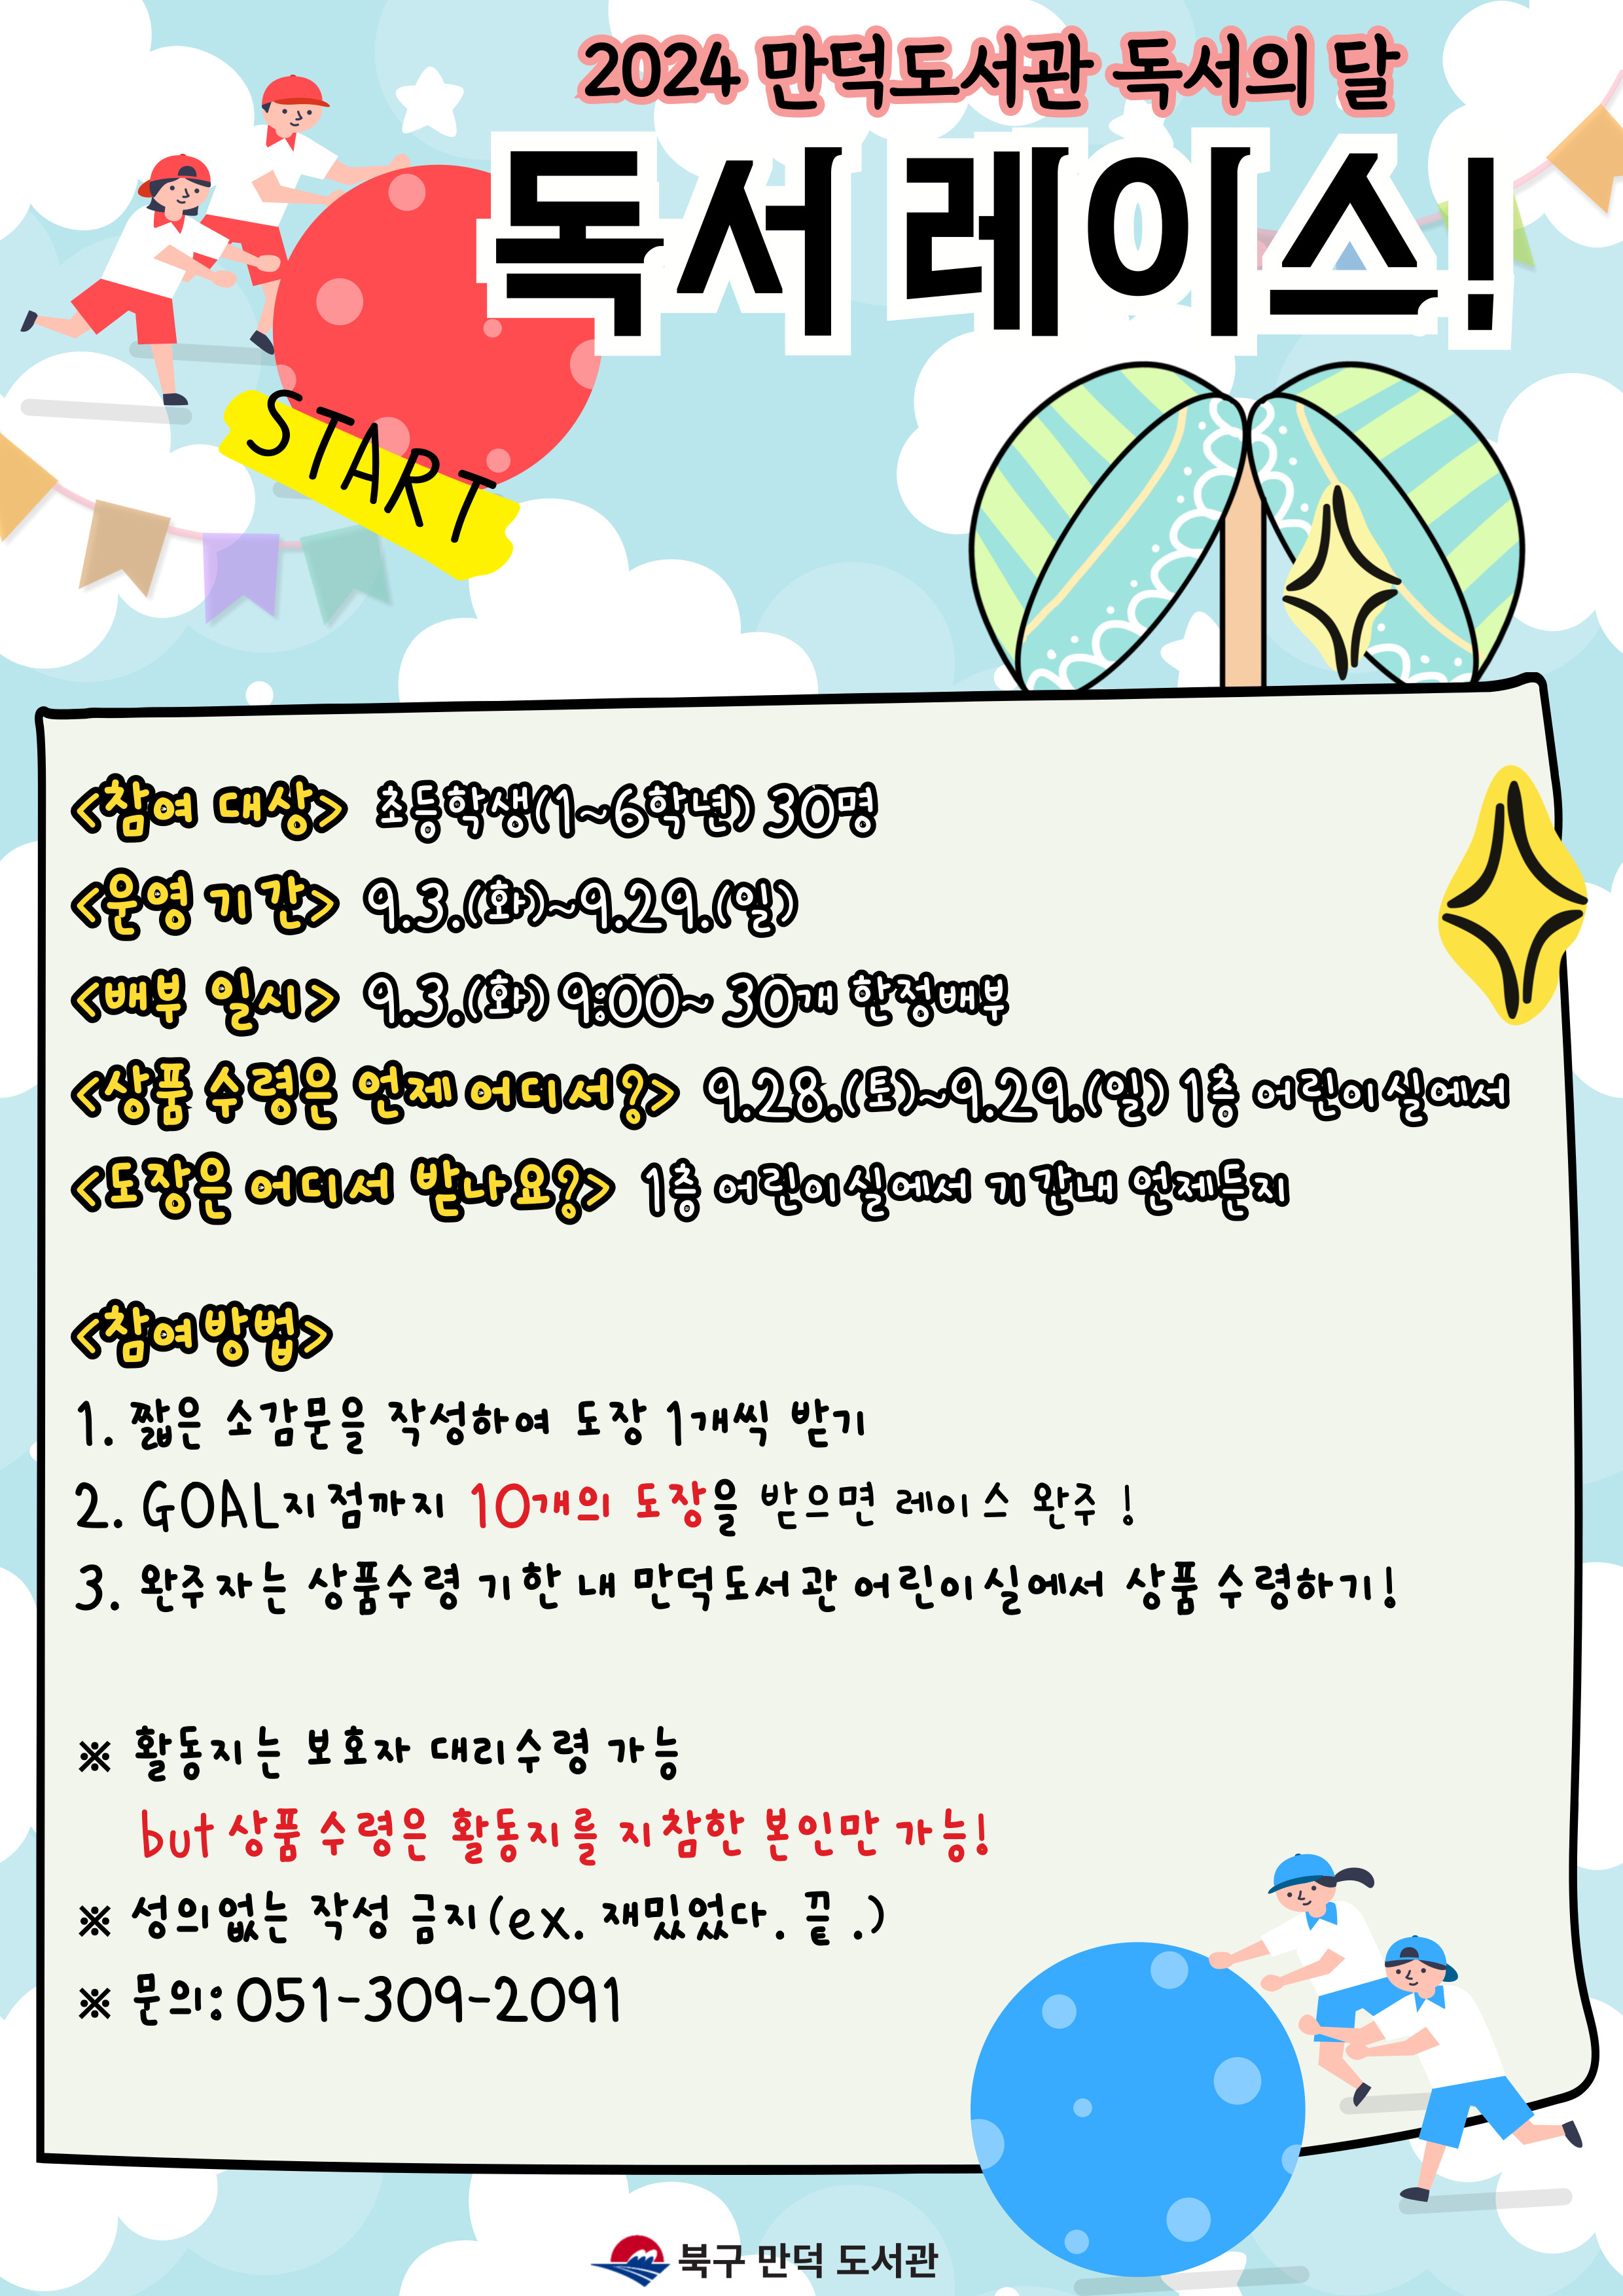 2024 만덕도서관 독서의 달
독서 레이스!
START
<참여 대상> 초등학생(1~6학년) 30명
<운영 기간> 9.3.(화)~9.29.(일)
<배부 일시> 9.3.(화) 9:00~ 30개 한정배부
<상품 수령은 언제 어디서?> 9.28.(토)~9.29.(일) 1층 어린이실에서
<도장은 어디서 받나요?> 1층 어린이실에서 기간내 언제든지
<참여방법>
1. 짧은 소감문을 작성하여 도장 1개씩 받기
2. GOAL지점까지 10개의 도장을 받으면 레이스 완주 !
3. 완주자는 상품수령 기한 내 만덕도서관 어린이실에서 상품 수령하기!
※ 활동지는 보호자 대리수령 가능
but 상품 수령은 활동지를 지참한 본인만 가능!
※ 성의없는 작성 금지(ex. 재밌었다. 끝 .)
※ 문의: 051-309-2091
북구 만덕 도서관